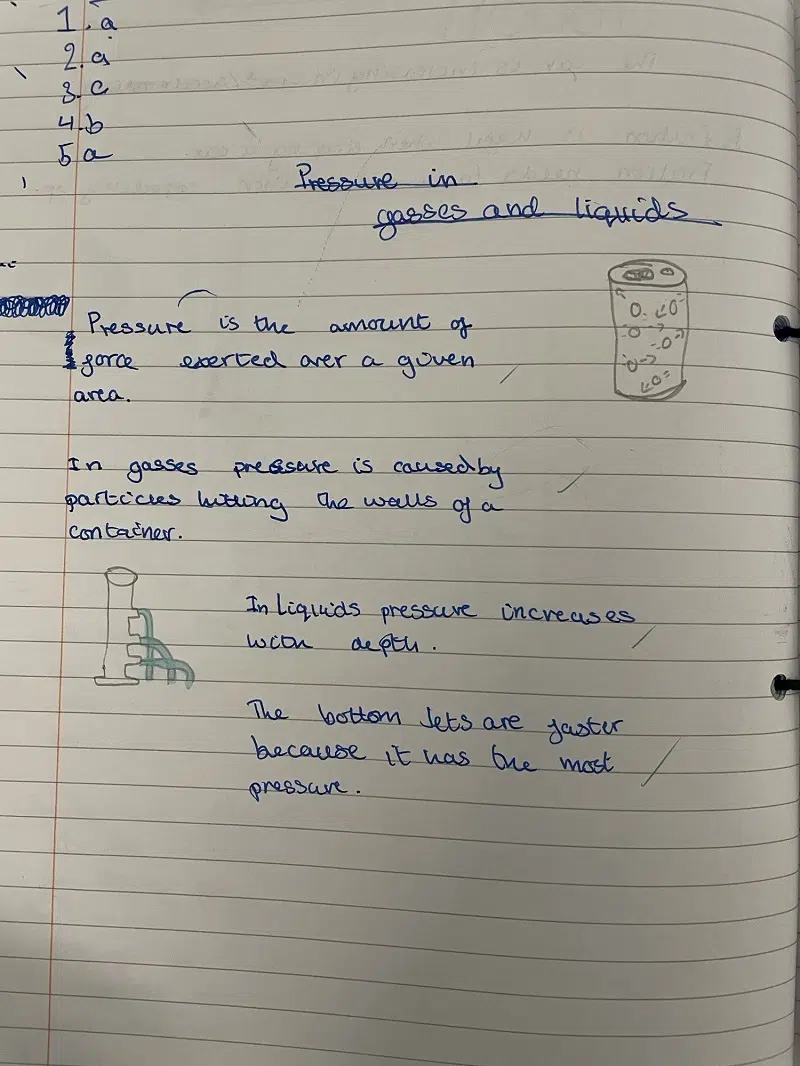 1. a
2. a
3. c
4. b
5 a
Pressure in
gasses and liquids
Pressure is the amount of
force exerted over a given
area.
In gasses pressure is caused by
particles hitting the walls of a
container.
In Liquids pressure increases
with depth.
The bottom Jets are faster
because it has the most
pressure.